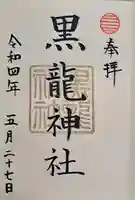 奉拝
黒龍神社
令和四年 五月二十七日